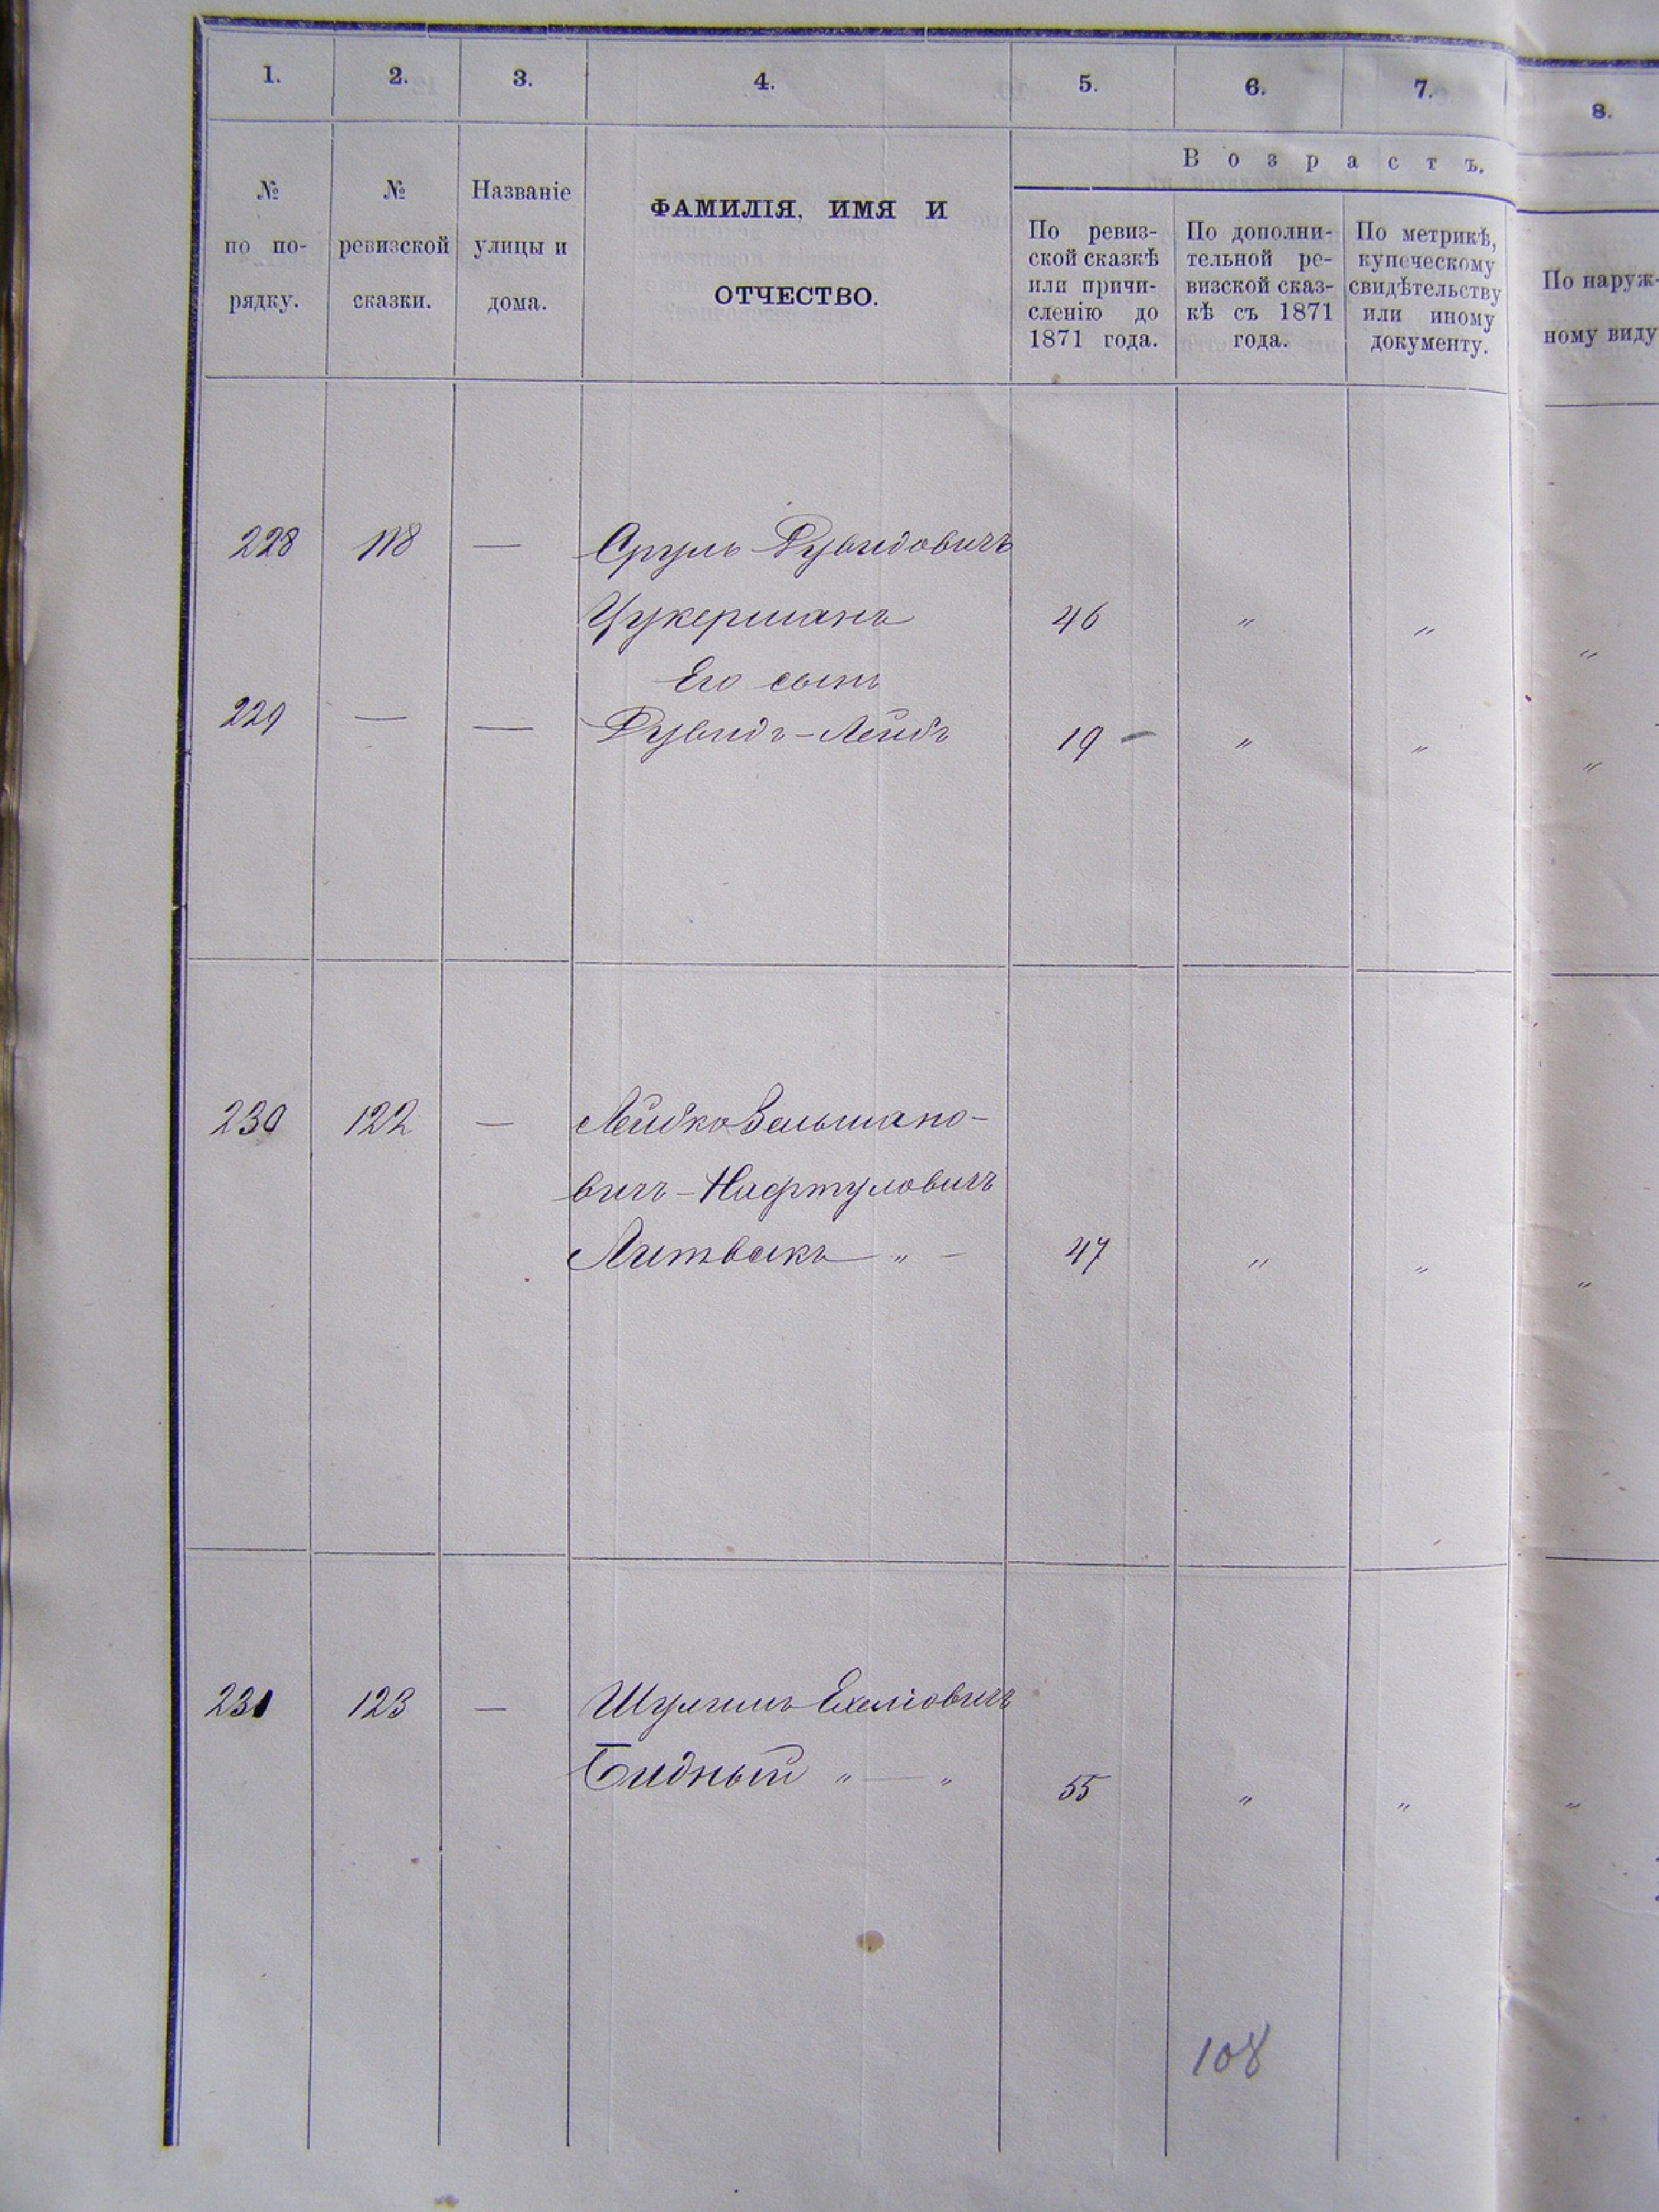 1. 2. 3. 4. 5. 6. 7. 8.
Возрастъ.
№ по по-рядку.
№ ревизской сказки.
Названіе улицы и дома.
ФАМИЛІЯ, ИМЯ И
ОТЧЕСТВО.
По ревиз-ской сказкѣ или причи-сленію до 1871 года.
По дополни-тельной ре-визской сказ-кѣ съ 1871 года.
По метрикѣ, купеческому свидѣтельству или иному документу.
По наруж-
ному виду
228 118 — Сруль Рувидовичъ
Цукерманъ 46 " " "
Его сынъ
229 — — Рувидъ-Лейбъ 19 - " " "
230 122 — Лейбко Вельмано-
вичъ-Нафтуловичъ
Литвакъ " — 47 " " "
231 123 — Шулимъ Ехеліовичъ
Бидный " — " 55 " " "
108